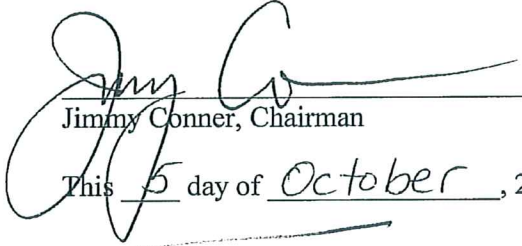 Jimmy Conner, Chairman
This 5 day of October, 2